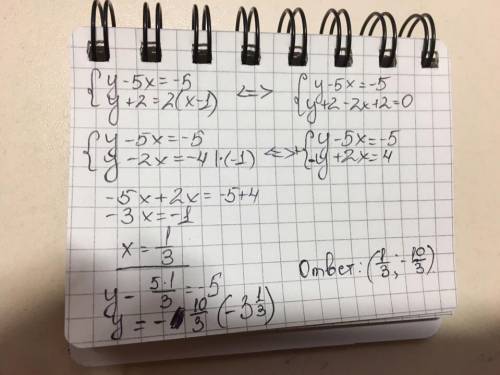 {y-5x=-5
y+2=2(x-1) <=> {y-5x=-5
y+2-2x+2=0
{y-5x=-5
y-2x=-4 |·(-1) <=> {y-5x=-5
-y+2x=4
-5x+2x=-5+4
-3x=-1
x=1/3
y-5·1/3=-5
y=-10/3 (-3 1/3)
Ответ: (1/3; -10/3)